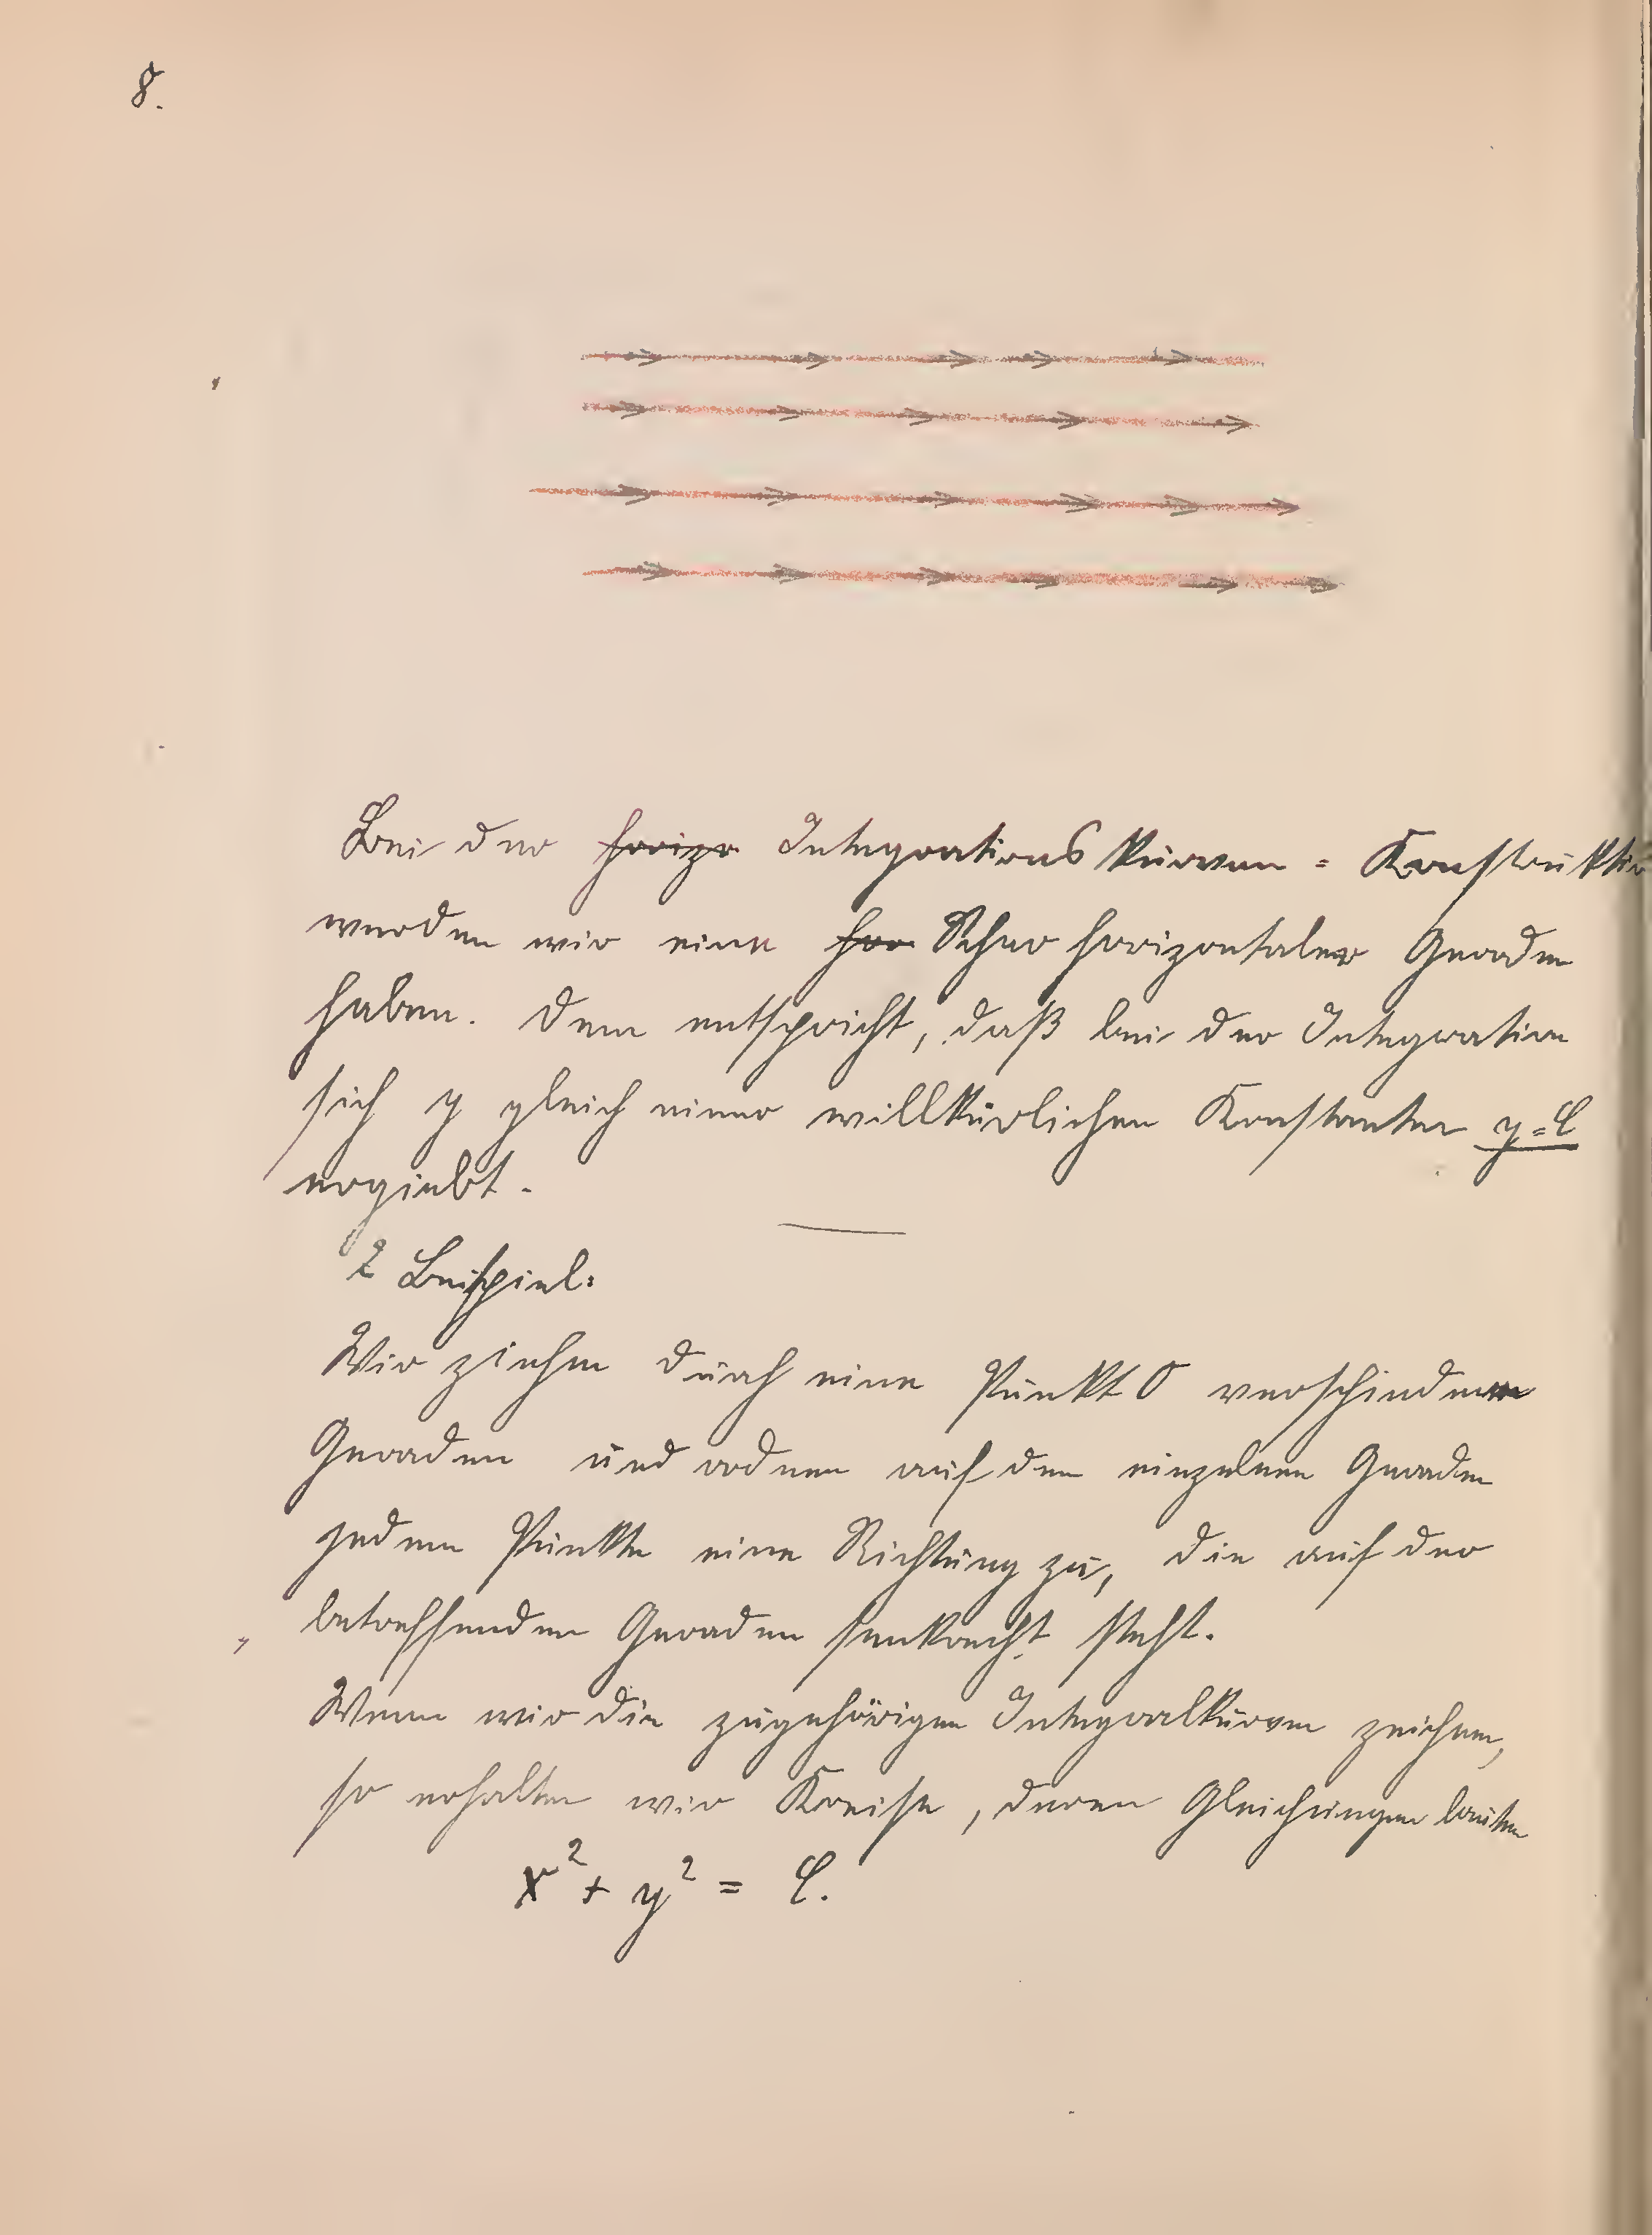 8.
Bei der horizo Integrationskurven = Konstruktion
werden wir eine hor Schar horizontaler Geraden
haben. Dem entspricht, daß bei der Integration
sich y gleich einer willkürlichen Konstanten y=C
ergiebt.
2 Beispiel:
Wir ziehen durch einen Punkt O verschiedenen
Geraden und ordnen auf den einzelnen Geraden
jedem Punkte eine Richtung zu, die auf der
betreffenden Geraden senkrecht steht.
Wenn wir die zugehörigen Integralkurven zeichnen,
so erhalten wir Kreise, deren Gleichungen lauten
x² + y² = C.